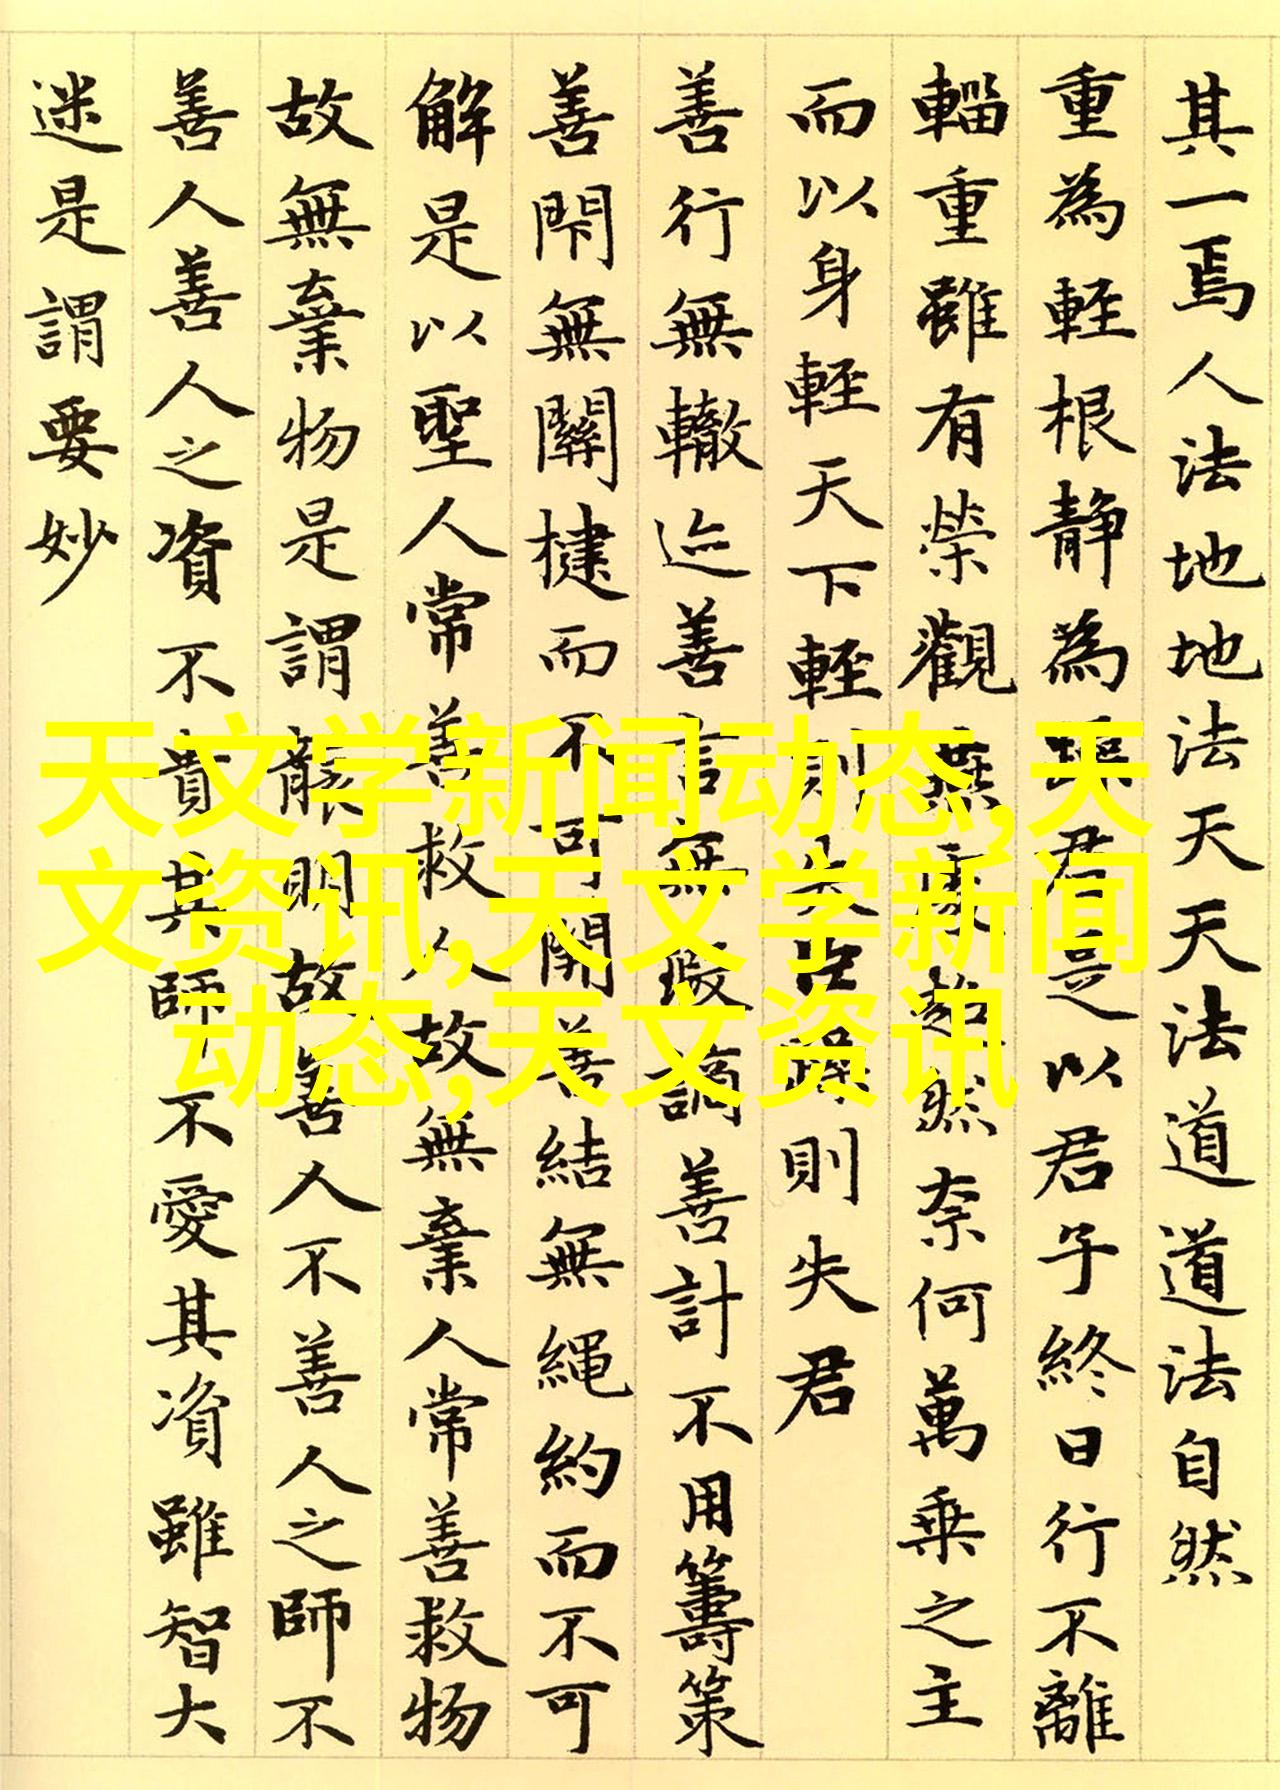 其一焉人法地地法天天法道道法自然
重為輕根静為躁君是以君子終日行不離
輜重雖有榮觀燕處超然奈何萬乘之主
而以身輕天下輕則失臣躁則失君
善行無轍迹善言無瑕謫善計不用籌策
善閇無關楗而不可開善結無繩約而不可
解是以聖人常善救人故無棄人常善救物
故無棄物是謂襲明故善人不善人之師不
善人善人之資不貴其師不愛其資雖智大
迷是謂要妙
天文学新闻动态,天
文资讯,天文学新闻
动态,天文资讯